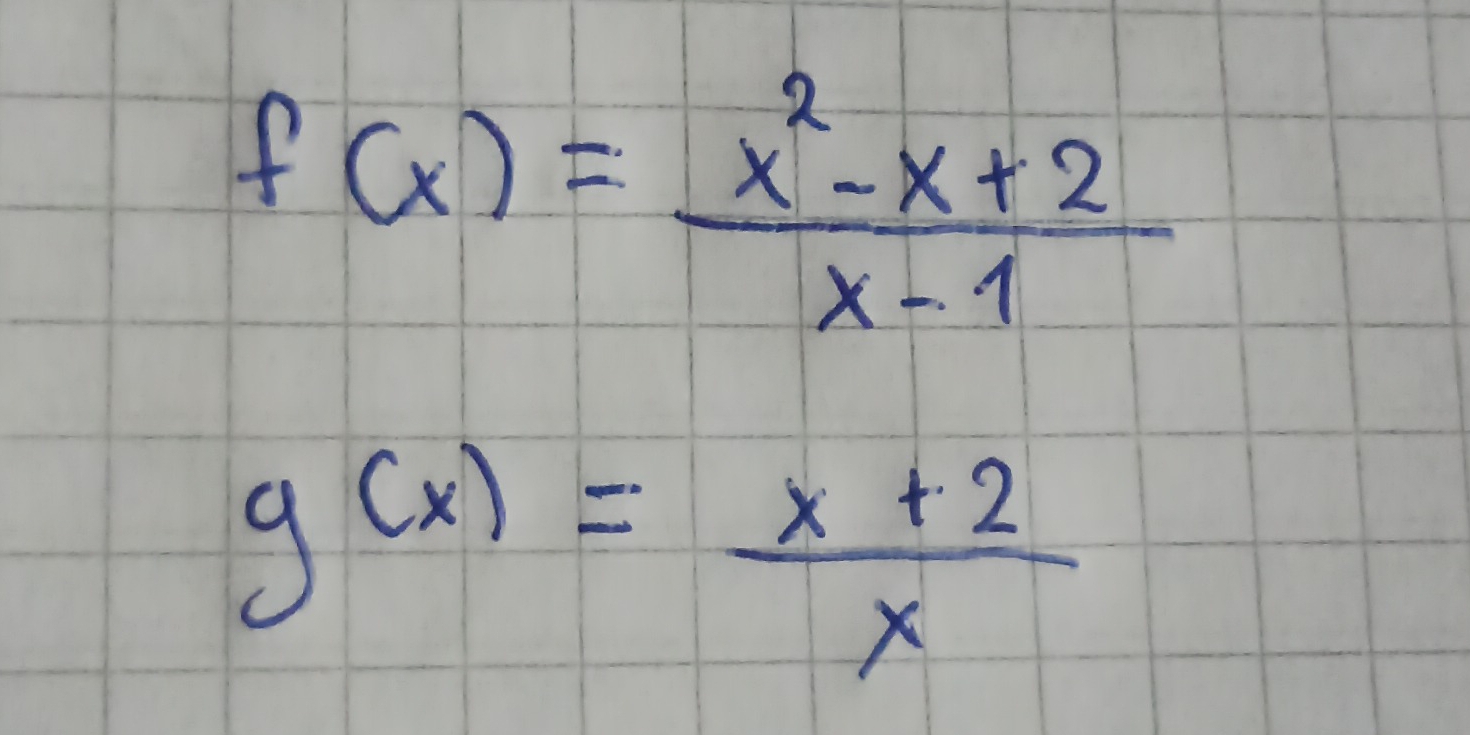 f(x) = \frac{x^2 - x + 2}{x - 1}
g(x) = \frac{x + 2}{x}